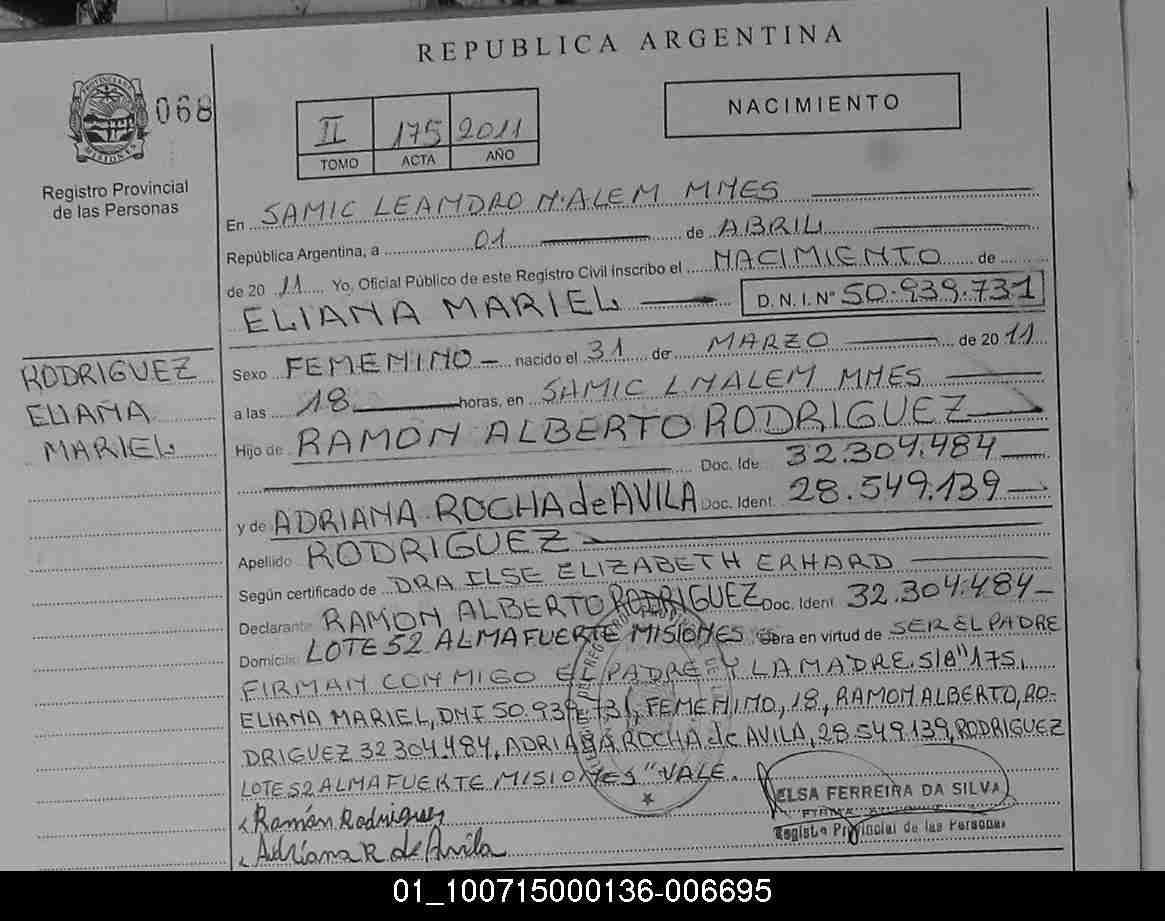 REPUBLICA ARGENTINA
PROVINCIA DE
MISIONES
068
Registro Provincial
de las Personas
II 175 2011
TOMO ACTA AÑO
NACIMIENTO
En SAMIC LEANDRO N. ALEM MNES
República Argentina, a 01 de ABRIL
de 20 11 Yo, Oficial Público de este Registro Civil inscribo el NACIMIENTO de
ELIANA MARIEL D. N. I. Nº 50.939.731
RODRIGUEZ
ELIANA
MARIEL
Sexo FEMENINO nacido el 31 de MARZO de 20 11
a las 18 horas, en SAMIC L N ALEM MNES
Hijo de RAMON ALBERTO RODRIGUEZ
Doc. Ide 32.304.484
y de ADRIANA ROCHA de AVILA Doc. Ident. 28.549.139
Apellido RODRIGUEZ
Según certificado de DRA ILSE ELIZABETH ERHARD
Declarante RAMON ALBERTO RODRIGUEZ Doc. Ident 32.304.484
Domicilio LOTE 52 ALMAFUERTE MISIONES Obra en virtud de SER EL PADRE
FIRMAN CONMIGO EL PADRE Y LA MADRE. S/B "175,
ELIANA MARIEL, DNI 50.939.731, FEMENINO, 18, RAMON ALBERTO, RO-
DRIGUEZ 32304.484, ADRIANA ROCHA de AVILA, 28.549.139, RODRIGUEZ
LOTE 52 ALMAFUERTE MISIONES" VALE.
Ramón Rodriguez
Adriana R de Avila
ELSA FERREIRA DA SILVA
Registro Provincial de las Personas
01_100715000136-006695